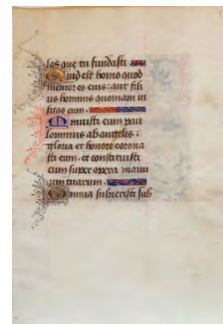 las que tu fundasti
Quid est homo quod
memor es eius: aut fili
us hominis quoniam vi
sitas eum.
Minuisti eum pau
lominus ab angelis:
gloria et honore corona
sti eum. et constituisti
eum super opera manu
um tuarum.
Omnia subiecisti sub